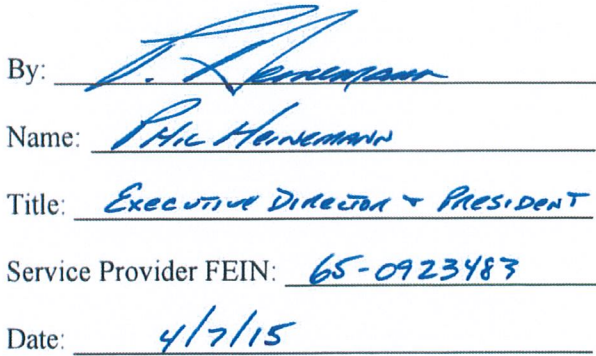 By: P. Heinemann
Name: PHIL HEINEMANN
Title: EXECUTIVE DIRECTOR + PRESIDENT
Service Provider FEIN: 65-0923483
Date: 4/7/15